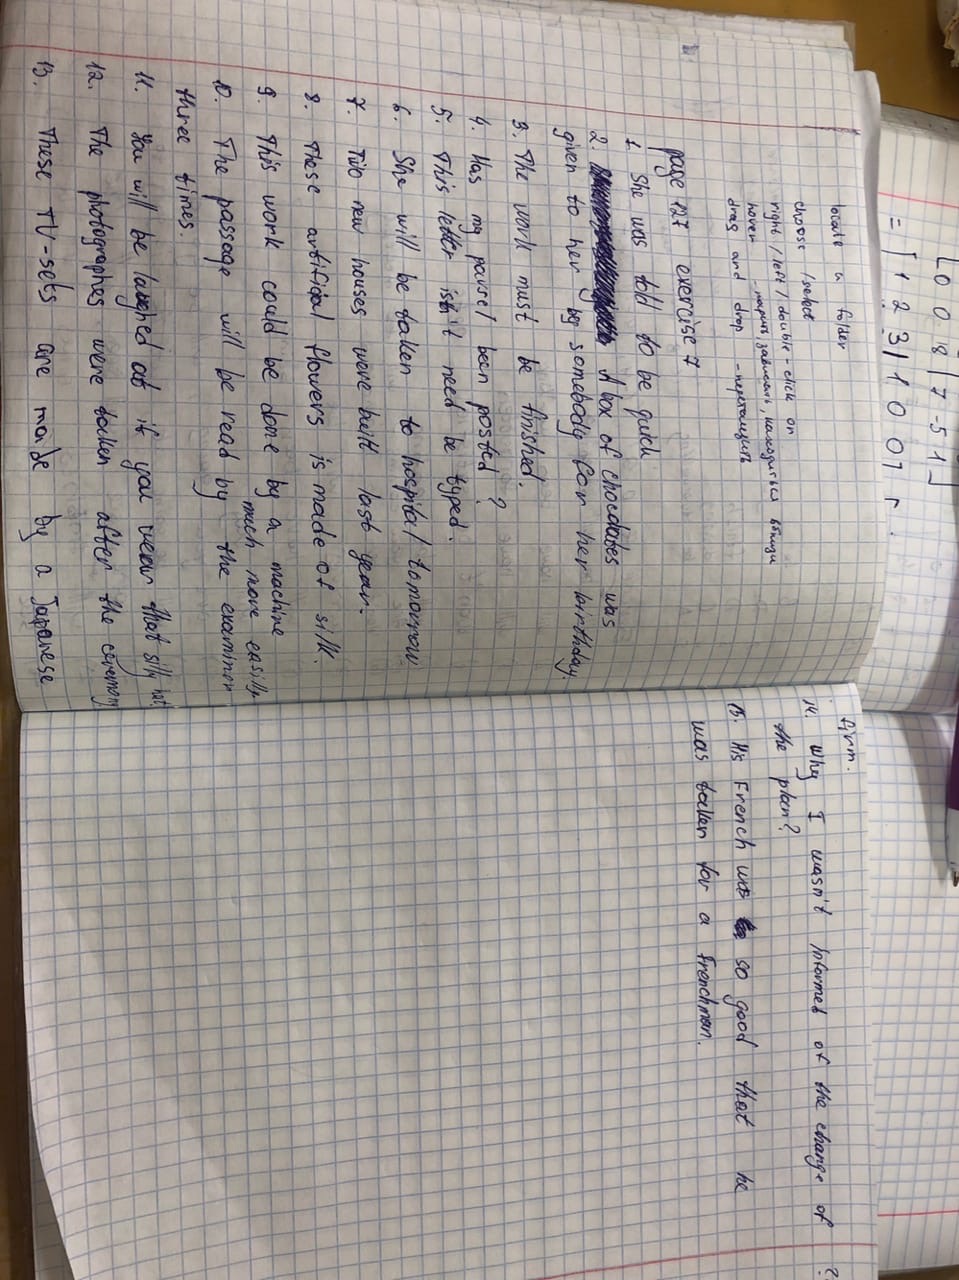 [0 0 8 | 7 -5 1]
= [1 2 3 | 1 0 0]
locate a folder
choose / select
right / left / double - click on
hover - парить, зависать, находиться вблизи
drag and drop - перетащить
page 127 exercise 7
1. She was told to be quick
2. A box of chocolates was
given to her by somebody for her birthday.
3. The work must be finished.
4. Has my parsel been posted?
5. This letter isn't need be typed.
6. She will be taken to hospital tomorrow
7. Two new houses were built last year.
8. These artificial flowers is made of silk.
9. This work could be done by a machine
much more easilly.
10. The passage will be read by the examiner
three times.
11. You will be laughed at if you wear that silly hat.
12. The photographes were taken after the ceremony
13. These TV-sets are made by a Japanese
firm.
14. Why I wasn't informed of the change of ?
the plan?
15. His French was so good that he
was taken for a Frenchman.